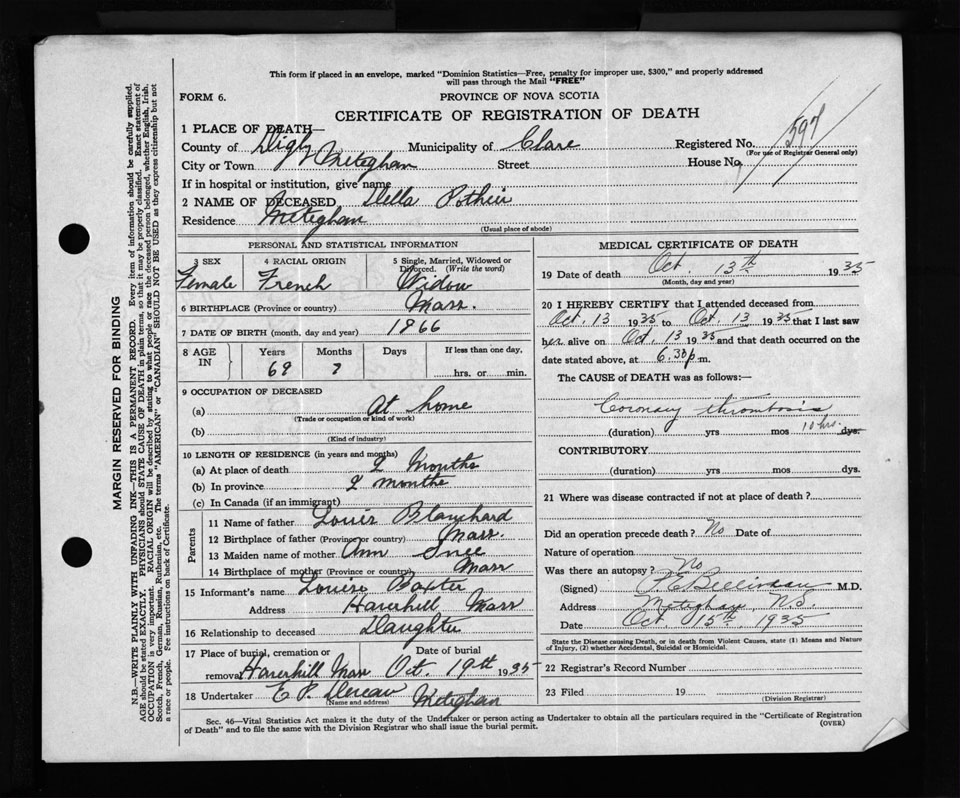 This form if placed in an envelope, marked "Dominion Statistics—Free, penalty for improper use, $300," and properly addressed
will pass through the Mail "FREE"
FORM 6.
PROVINCE OF NOVA SCOTIA
CERTIFICATE OF REGISTRATION OF DEATH
1 PLACE OF DEATH—
County of Digby Municipality of Clare Registered No. 597
(For use of Registrar General only)
City or Town Meteghan Street House No.
If in hospital or institution, give name
2 NAME OF DECEASED Della Pothier
Residence Meteghan
(Usual place of abode)
PERSONAL AND STATISTICAL INFORMATION
3 SEX 4 RACIAL ORIGIN 5 Single, Married, Widowed or
Divorced. (Write the word)
Female French Widow
6 BIRTHPLACE (Province or country) Mass.
7 DATE OF BIRTH (month, day and year) 1866
8 AGE IN Years Months Days If less than one day,
69 7 hrs. or min.
9 OCCUPATION OF DECEASED
(a) At home
(Trade or occupation or kind of work)
(b)
(Kind of industry)
10 LENGTH OF RESIDENCE (in years and months)
(a) At place of death 2 Months
(b) In province 2 months
(c) In Canada (if an immigrant)
Parents
11 Name of father Louis Blanchard
12 Birthplace of father (Province or country) Mass.
13 Maiden name of mother Ann Snee
14 Birthplace of mother (Province or country) Mass
15 Informant's name Louise Baxter
Address Haverhill Mass
16 Relationship to deceased Daughter
17 Place of burial, cremation or removal Date of burial
Haverhill Mass Oct. 19th 1935
18 Undertaker E P. Deveau Meteghan
(Name and address)
MEDICAL CERTIFICATE OF DEATH
19 Date of death Oct. 13th 1935
(Month, day and year)
20 I HEREBY CERTIFY that I attended deceased from
Oct. 13 1935 to Oct. 13 1935 that I last saw
her alive on Oct. 13 1935 and that death occurred on the
date stated above, at 6.30 p.m.
The CAUSE of DEATH was as follows:—
Coronary thrombosis
(duration) yrs mos 10 hrs. dys.
CONTRIBUTORY
(duration) yrs mos dys.
21 Where was disease contracted if not at place of death?
Did an operation precede death? No Date of
Nature of operation
Was there an autopsy? No
(Signed) P E Belliveau M.D.
Address Meteghan, N.S.
Date Oct 15th, 1935
State the Disease causing Death, or in death from Violent Causes, state (1) Means and Nature
of Injury, (2) whether Accidental, Suicidal or Homicidal.
22 Registrar's Record Number
23 Filed 19
(Division Registrar)
Sec. 46—Vital Statistics Act makes it the duty of the Undertaker or person acting as Undertaker to obtain all the particulars required in the "Certificate of Registration
of Death" and to file the same with the Division Registrar who shall issue the burial permit.
(OVER)
MARGIN RESERVED FOR BINDING
N.B.—WRITE PLAINLY WITH UNFADING INK—THIS IS A PERMANENT RECORD. Every item of information should be carefully supplied.
AGE should be stated EXACTLY. PHYSICIANS should STATE CAUSE OF DEATH in plain terms, so that it may be properly classified. Exact statement of
OCCUPATION is very important. RACIAL ORIGIN will be described by stating to what people or race the deceased person belonged, whether English, Irish,
Scotch, French, German, Russian, Ruthenian, etc. The terms "AMERICAN" or "CANADIAN" SHOULD NOT BE USED as they express citizenship but not
a race or people. See instructions on back of Certificate.